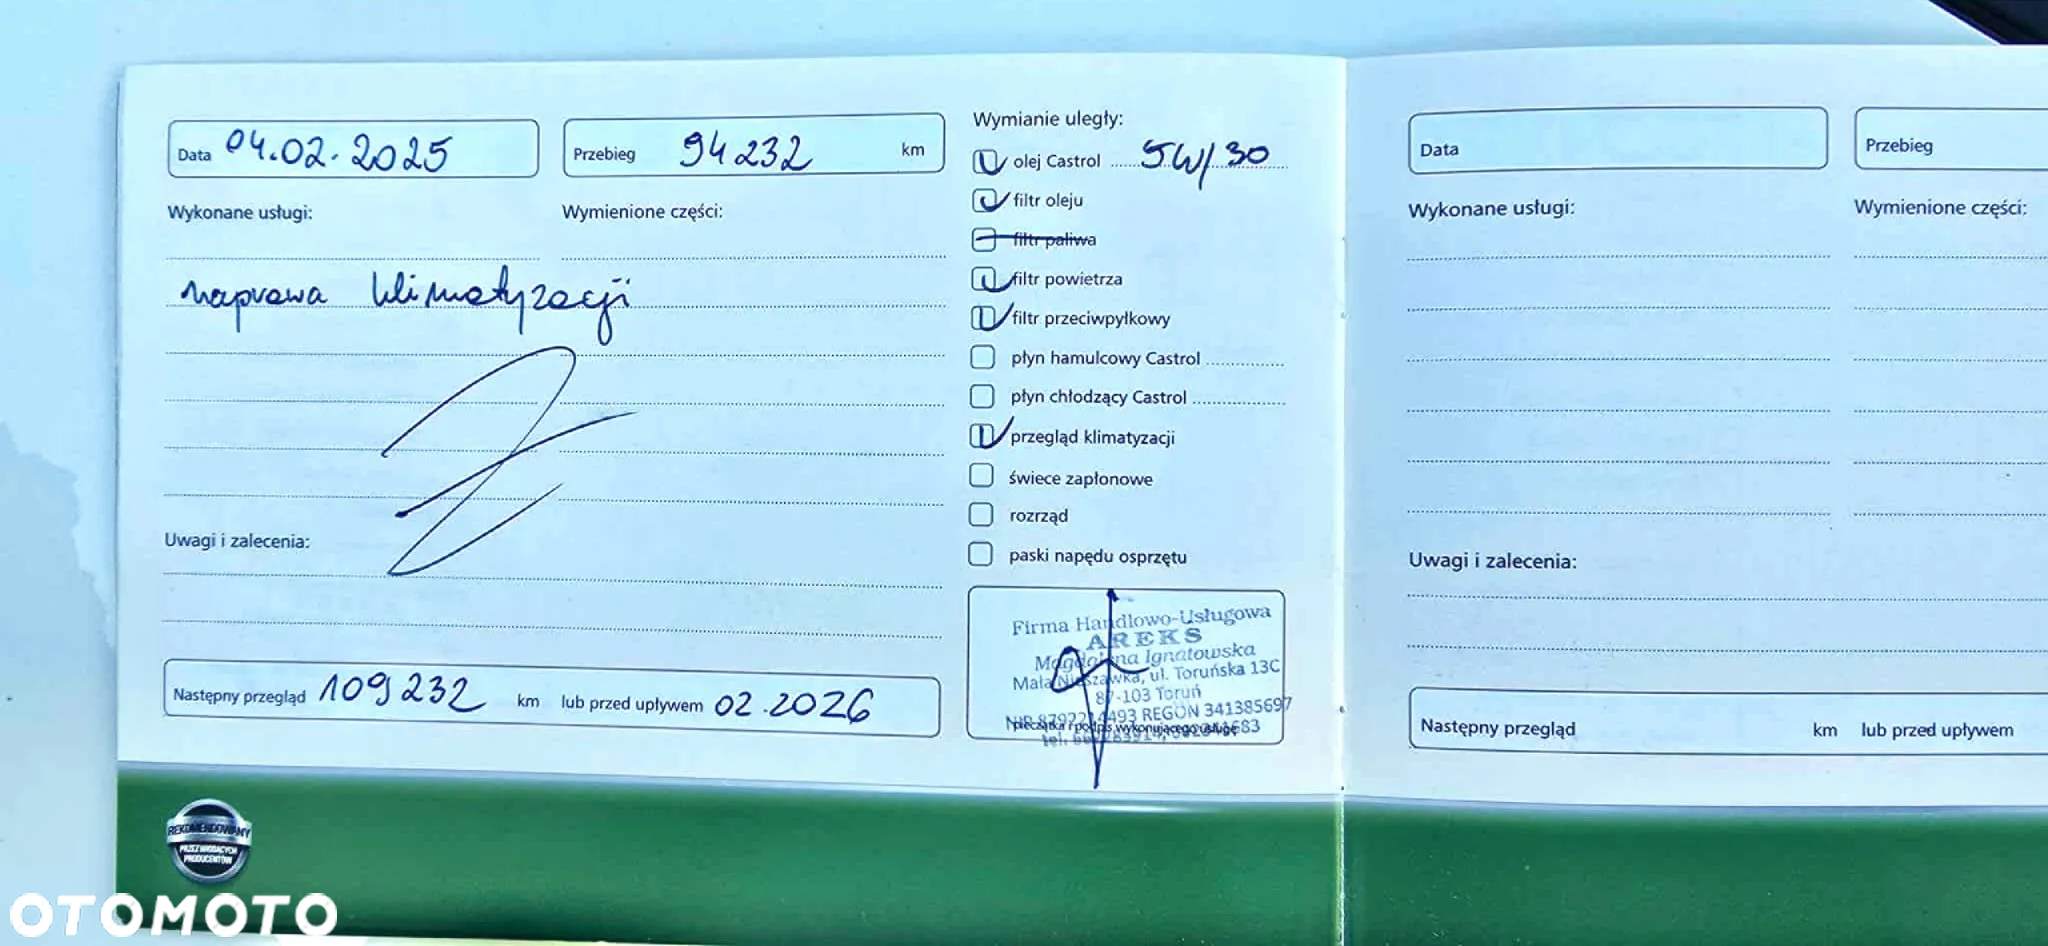 Data 04.02.2025
Przebieg 94232 km
Wykonane usługi:
Wymienione części:
naprawa klimatyzacji
Uwagi i zalecenia:
Następny przegląd 109232 km lub przed upływem 02.2026
Wymianie uległy:
olej Castrol 5W/30
filtr oleju
filtr paliwa
filtr powietrza
filtr przeciwpyłkowy
płyn hamulcowy Castrol
płyn chłodzący Castrol
przegląd klimatyzacji
świece zapłonowe
rozrząd
paski napędu osprzętu
Firma Handlowo-Usługowa
AREKS
Magdalena Ignatowska
Mała Nieszawka, ul. Toruńska 13C
87-103 Toruń
NIP REGON 341385697
pieczątka i podpis wykonującego usługę
tel.
Data
Przebieg
Wykonane usługi:
Wymienione części:
Uwagi i zalecenia:
Następny przegląd km lub przed upływem
REKOMENDOWANY
PRZEZ WIODĄCYCH
PRODUCENTÓW
OTOMOTO